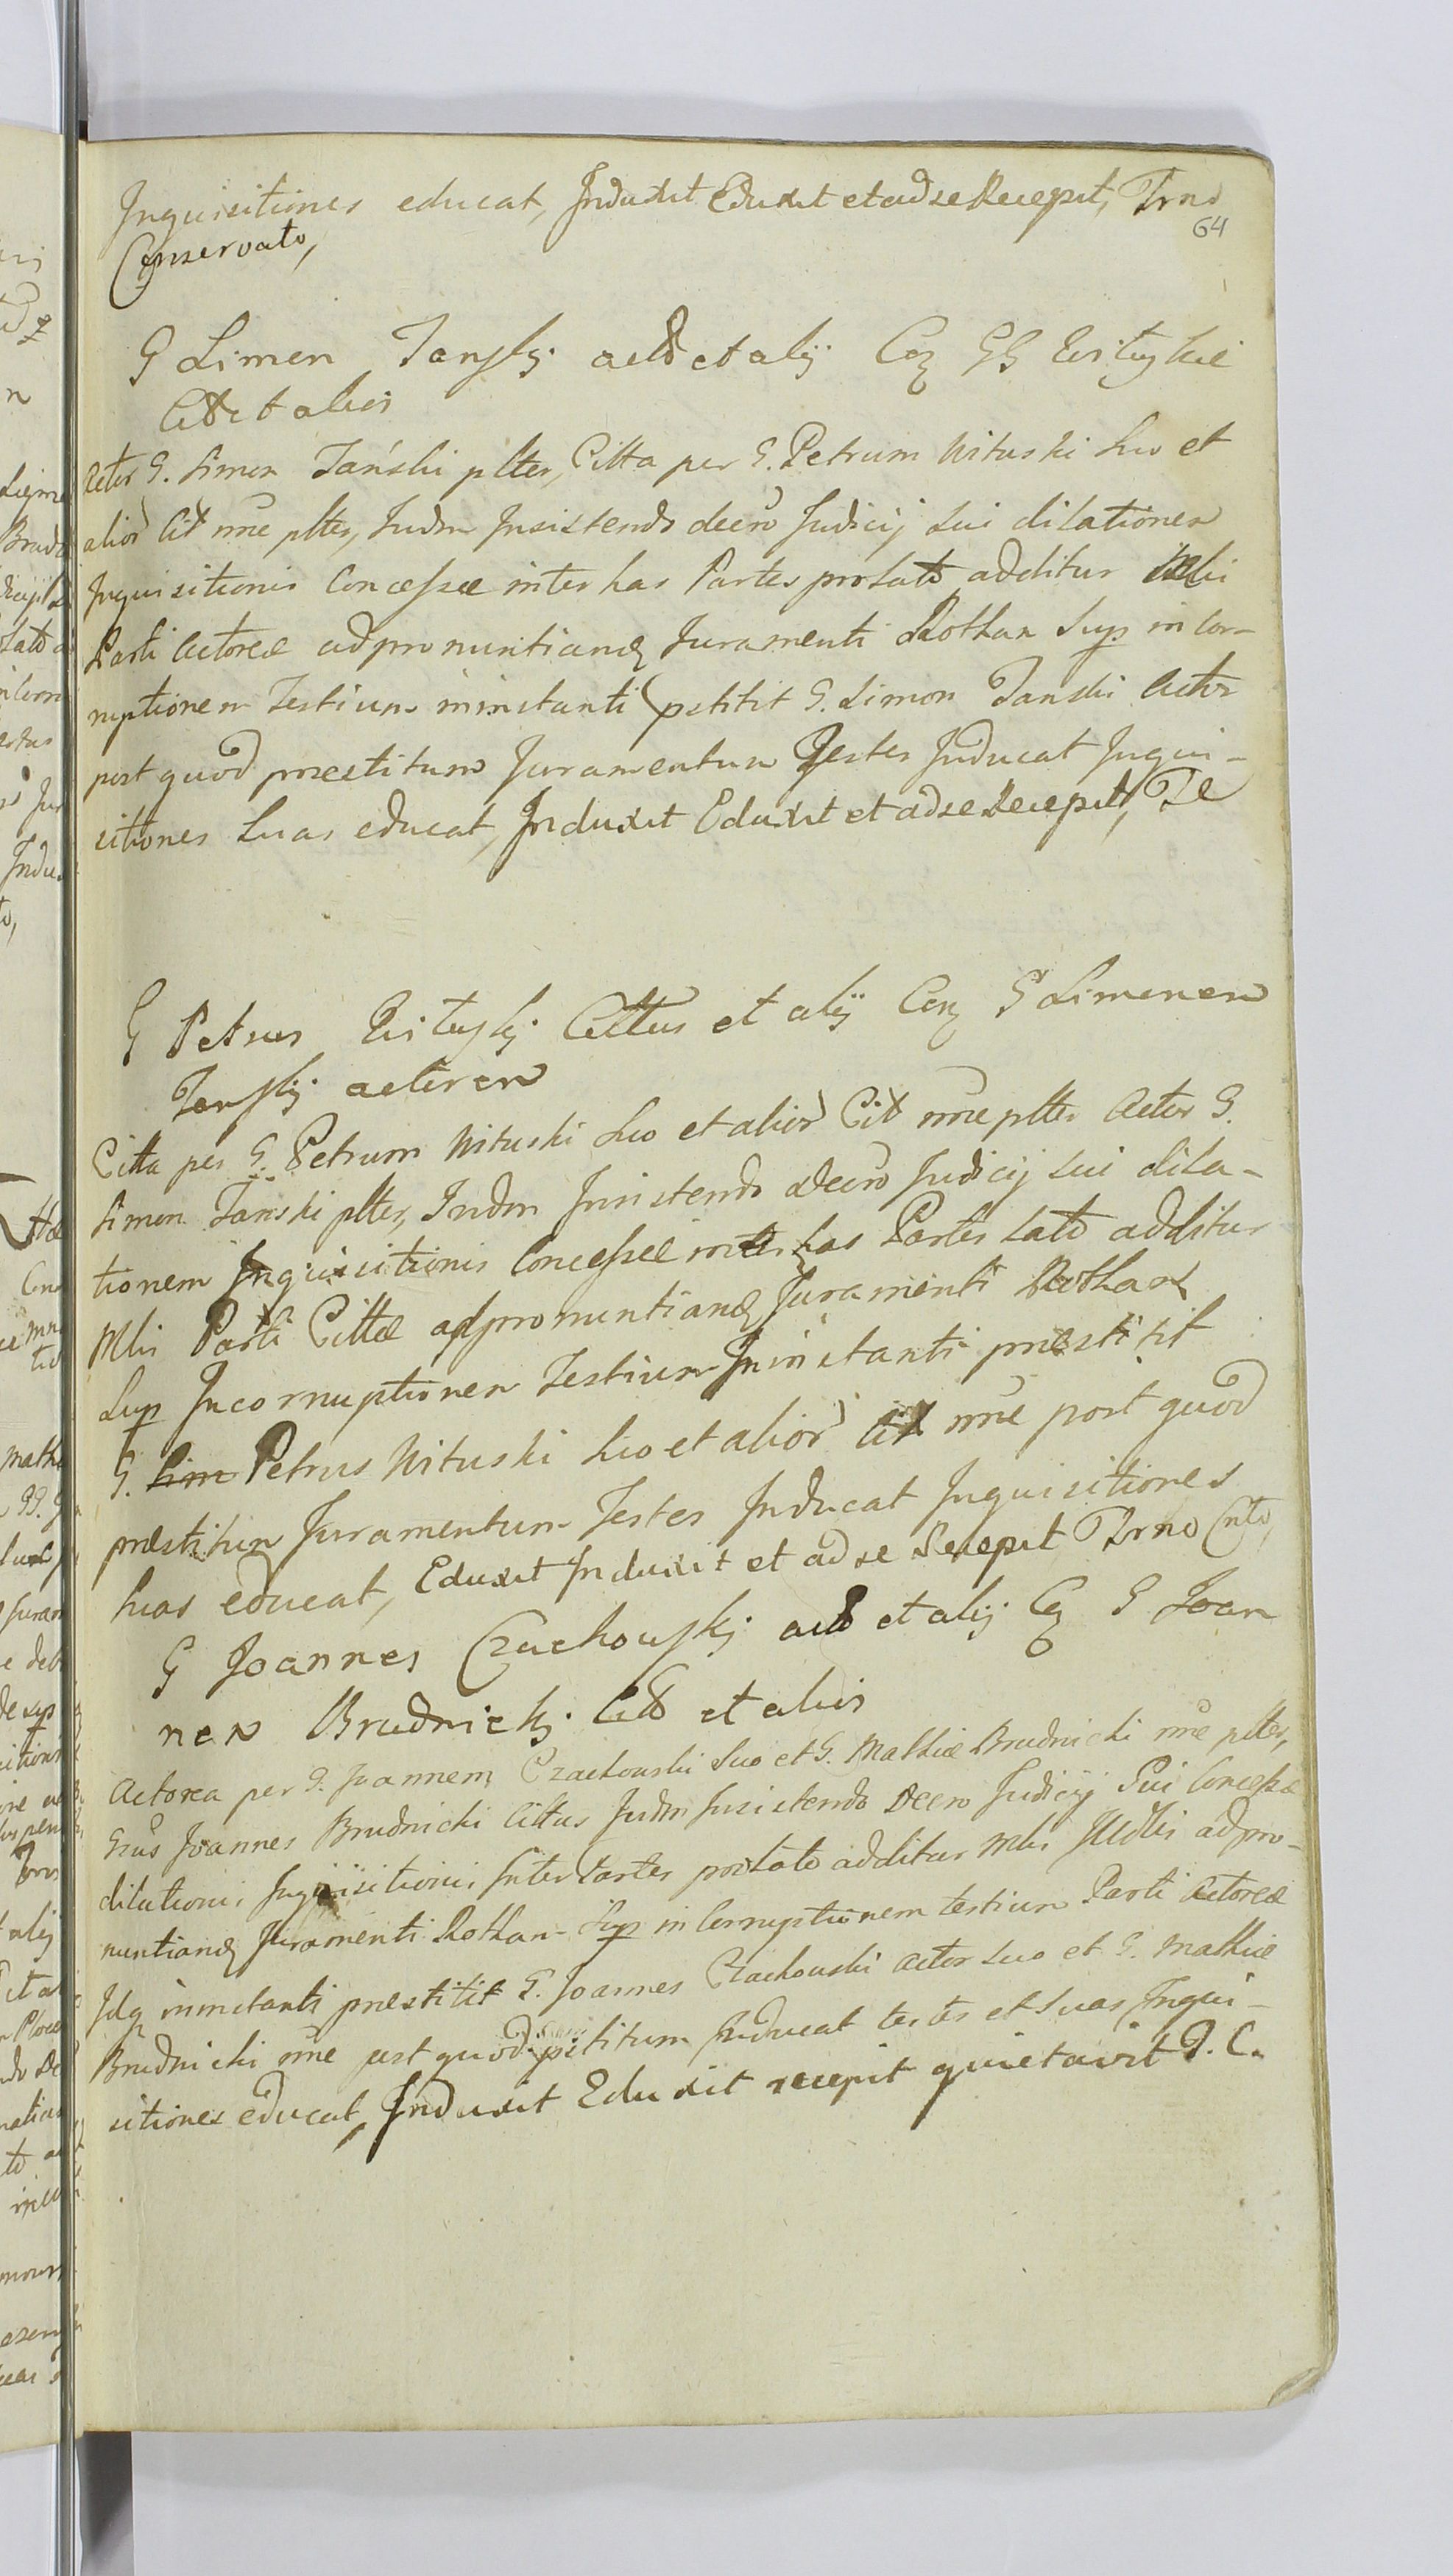 Inquisitiones educat, Induxit Eduxit et ad se Recepit, Trno
64
Conservato,
G Simon Tansky actor et alij Coq GG Wituskie
Citt et alios
Actor G. Simon Tański plter, Citta per G. Petrum Wituski suo et
alior Cit nne plter, Iudm Insistendo decro Judicij sui dilationem
Inquisitionis Concessæ inter has Partes prolato additur Mlis
Parti Actoreæ ad pronuntiandq Juramenti Rotham Sup in cor-
ruptionem Testium in instanti pstitit G. Simon Tanski Actor
post quod præstitum Juramentum Testes Inducat Inqui-
sitiones suas educat, Induxit Eduxit et ad se Recepit, Te
G Petrus Witusky Cittus et alij Coq G Simonem
Tansky actorem
Citta per G. Petrum Wituski suo et alior Cit nne plter Actor G.
Simon Tański plter, Iudm Insistendo Decro Judicij sui dila-
tionem Inquisitionis Concessæ inter has Partes lato additur
Mlis Parti Cittæ ad pronuntiandq Juramenti Rotham
Sup Incorruptionem Testium In instanti præstitit
G. Sim Petrus Wituski suo et alior Cit nne post quod
præstitum Juramentum Testes Inducat Inquisitiones
suas educat, Eduxit Induxit et ad se Recepit Trno Cnto,
G Joannes Czachowsky actor et alij Cq G Joan
nem Brudnicky Citt et alios
Actorea per G. Joannem Czachowski suo et G. Mathiæ Brudnicki nne plter,
Gsus Joannes Brudnicki Cittus Judm Insistendo Decro Judicij Sui Concessæ
dilationis Inquisitionis Inter Partes prolato additur Mlis ad pro-
nuntiandq Juramenti Rotham Sup in Corruptionem testium Parti Actoreæ
Idq in instanti præstitit G. Joannes Czachowski Actor suo et G. Mathiæ
Brudnicki nne post quod pstitum Inducat testes et suas Inqui-
sitiones educat, Induxit Eduxit recepit quietavit P. C.